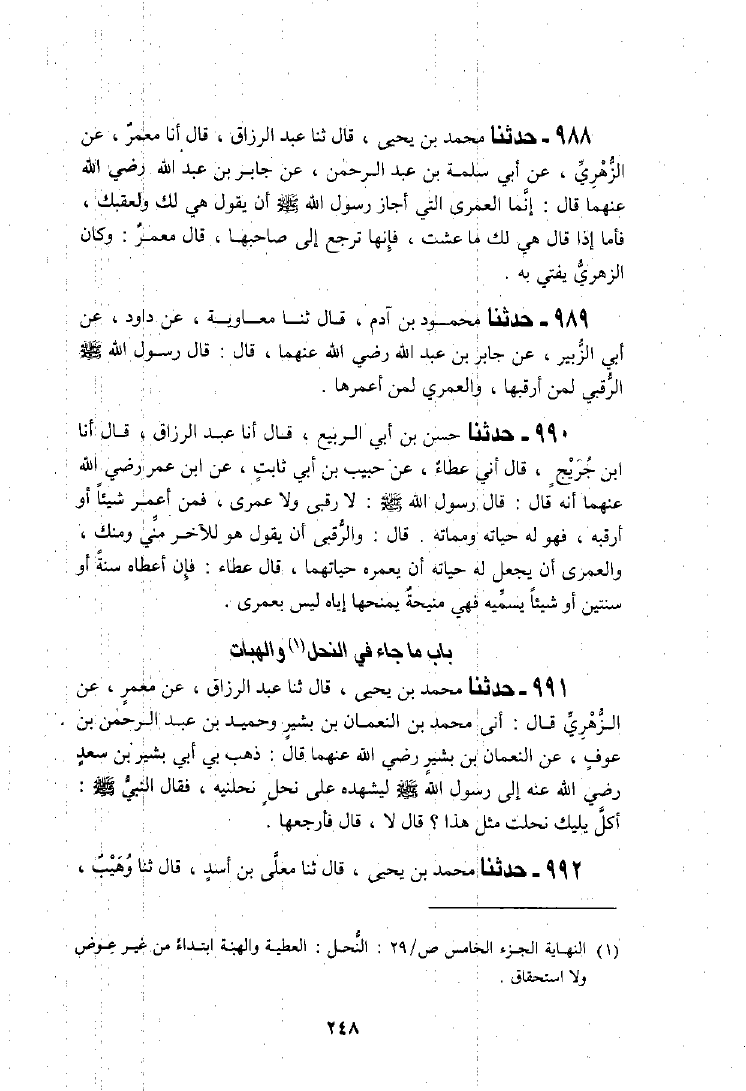 ٩٨٨ ـ حدثنا محمد بن يحيى ، قال ثنا عبد الرزاق ، قال أنا معمرٌ ، عن
الزُّهْرِيِّ ، عن أبي سلمة بن عبد الرحمن ، عن جابر بن عبد الله رضي الله
عنهما قال : إنَّما العمرى التي أجاز رسول الله ﷺ أن يقول هي لك ولعقبك ،
فأما إذا قال هي لك ما عشت ، فإنها ترجع إلى صاحبها ، قال معمرٌ : وكان
الزهريُّ يفتي به .
٩٨٩ ـ حدثنا محمود بن آدم ، قال ثنا معاوية ، عن داود ، عن
أبي الزُّبير ، عن جابر بن عبد الله رضي الله عنهما ، قال : قال رسول الله ﷺ
الرُّقبي لمن أرقبها ، والعمري لمن أعمرها .
٩٩٠ ـ حدثنا حسن بن أبي الربيع ، قال أنا عبد الرزاق ، قال أنا
ابن جُرَيْجٍ ، قال أني عطاءٌ ، عن حبيب بن أبي ثابتٍ ، عن ابن عمر رضي الله
عنهما أنه قال : قال رسول الله ﷺ : لا رقبى ولا عمرى ، فمن أعمر شيئاً أو
أرقبه ، فهو له حياته ومماته . قال : والرُّقبى أن يقول هو للآخر منِّي ومنك ،
والعمرى أن يجعل له حياته أن يعمره حياتهما ، قال عطاء : فإن أعطاه سنةً أو
سنتين أو شيئاً يسمِّيه فهي منيحةٌ يمنحها إياه ليس بعمرى .
باب ما جاء في النحل (١) والهبات
٩٩١ ـ حدثنا محمد بن يحيى ، قال ثنا عبد الرزاق ، عن معمرٍ ، عن
الزُّهْرِيِّ قال : أنى محمد بن النعمان بن بشيرٍ وحميد بن عبد الرحمن بن
عوفٍ ، عن النعمان بن بشيرٍ رضي الله عنهما قال : ذهب بي أبي بشير بن سعدٍ
رضي الله عنه إلى رسول الله ﷺ ليشهده على نحلٍ نحلنيه ، فقال النبيُّ ﷺ :
أكلَّ يليك نحلت مثل هذا ؟ قال لا ، قال فأرجعها .
٩٩٢ ـ حدثنا محمد بن يحيى ، قال ثنا معلَّى بن أسدٍ ، قال ثنا وُهَيْبٌ ،
(١) النهاية الجزء الخامس ص/٢٩ : النُّحل : العطية والهبة ابتداءً من غير عِوض
ولا استحقاق .
٢٤٨